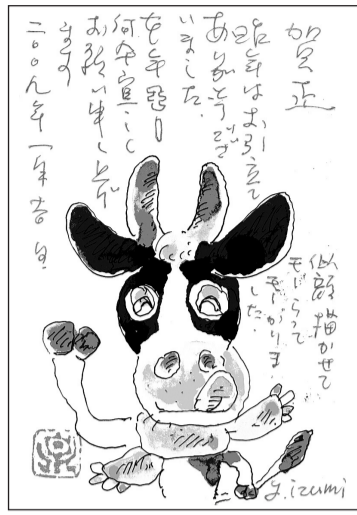 賀正
昨年はお引立て
ありがとうござ
いました.
本年も
何卒宜しく
お願い申し上げ
ます
二〇〇九年 一年吉日
似顔描かせて
モらって
した.
y.izumi